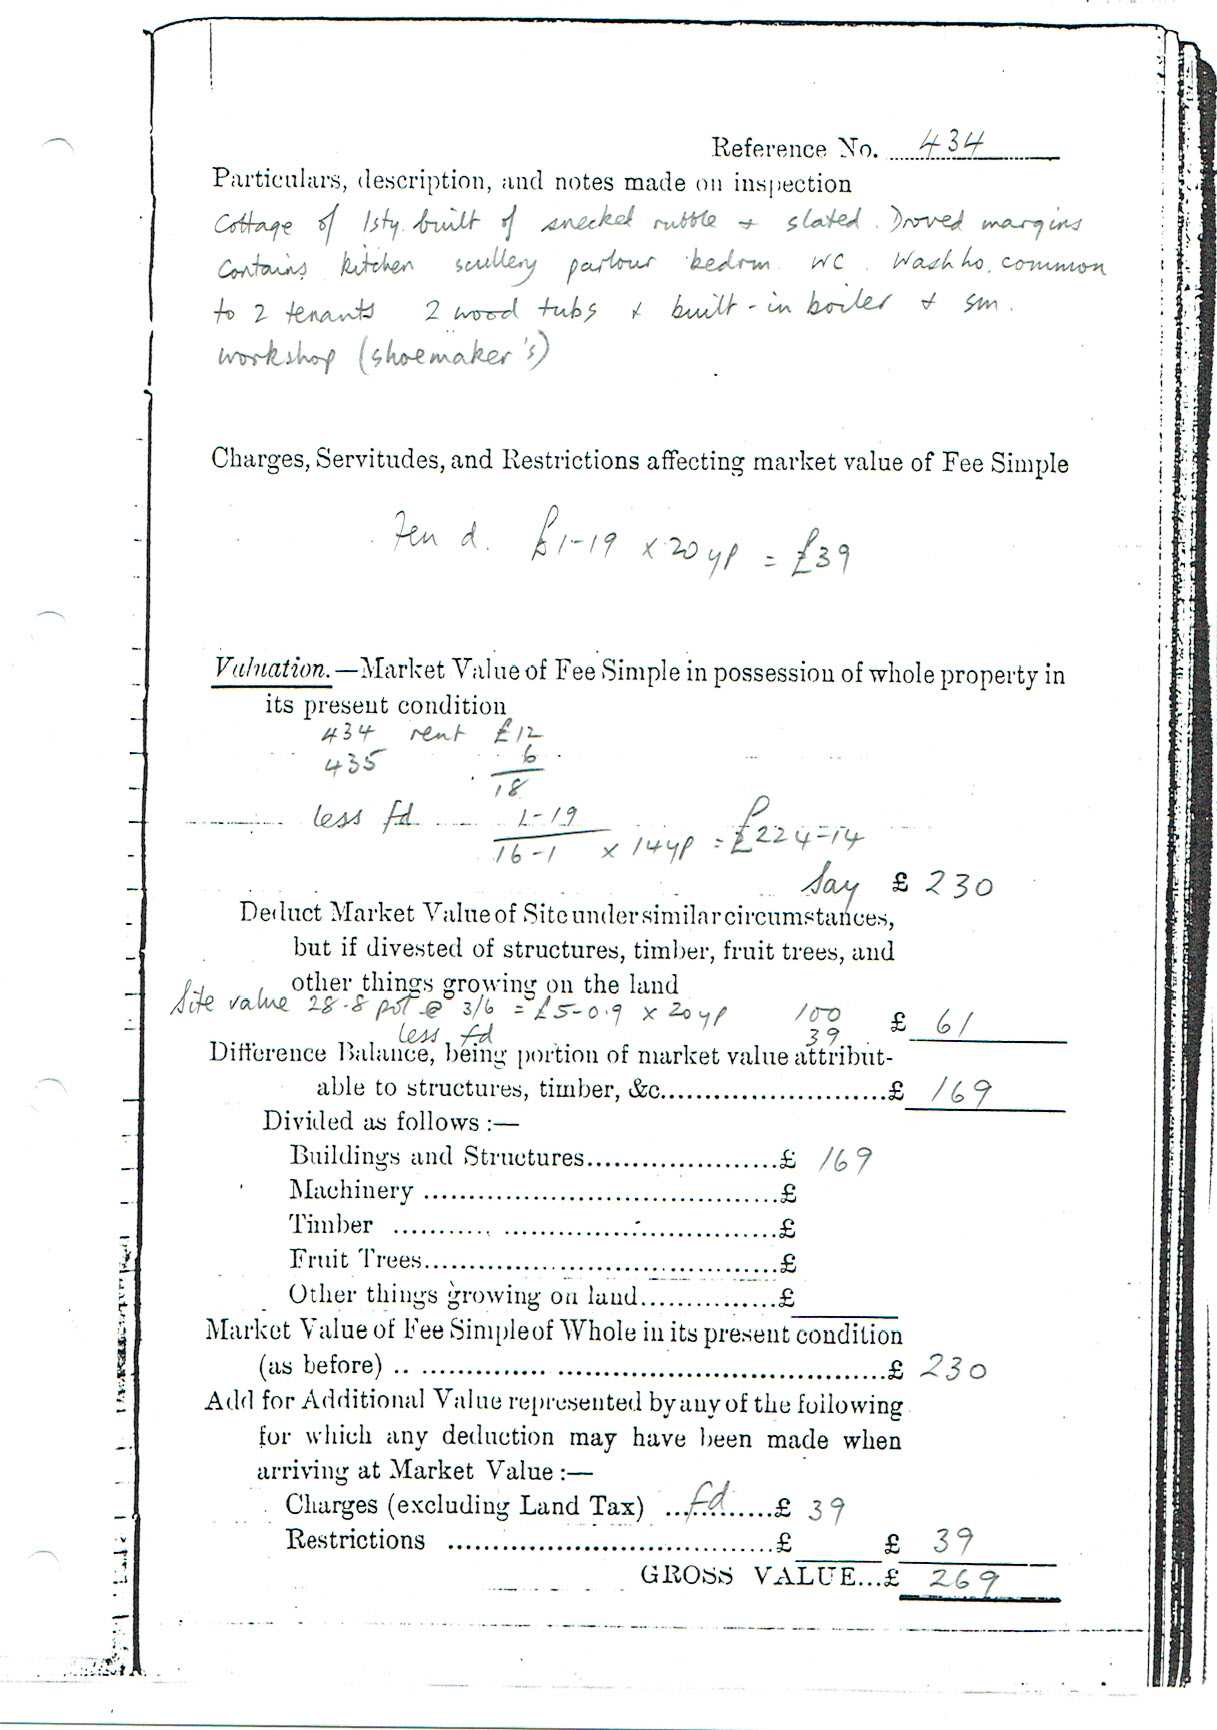 Reference No. 434
Particulars, description, and notes made on inspection
Cottage of 1sty. built of snecked rubble & slated. Droved margins
Contains kitchen scullery parlour bedrm. WC. Wash ho. common
to 2 tenants 2 wood tubs & built-in boiler & sm.
workshop (shoemaker's)
Charges, Servitudes, and Restrictions affecting market value of Fee Simple
Feu d. £1-19 x 20 yp = £39
Valuation.—Market Value of Fee Simple in possession of whole property in
its present condition
434 rent £12
435 6
18
less fd 1-19
16-1 x 14yp = £224-14
Say £ 230
Deduct Market Value of Site under similar circumstances,
but if divested of structures, timber, fruit trees, and
other things growing on the land
Site value 28.8 pol @ 3/6 = £5-0.9 x 20yp 100 £ 61
less fd 39
Difference Balance, being portion of market value attribut-
able to structures, timber, &c. £ 169
Divided as follows :—
Buildings and Structures £ 169
Machinery £
Timber £
Fruit Trees £
Other things growing on land £
Market Value of Fee Simple of Whole in its present condition
(as before) £ 230
Add for Additional Value represented by any of the following
for which any deduction may have been made when
arriving at Market Value :—
Charges (excluding Land Tax) fd £ 39
Restrictions £ £ 39
GROSS VALUE...£ 269